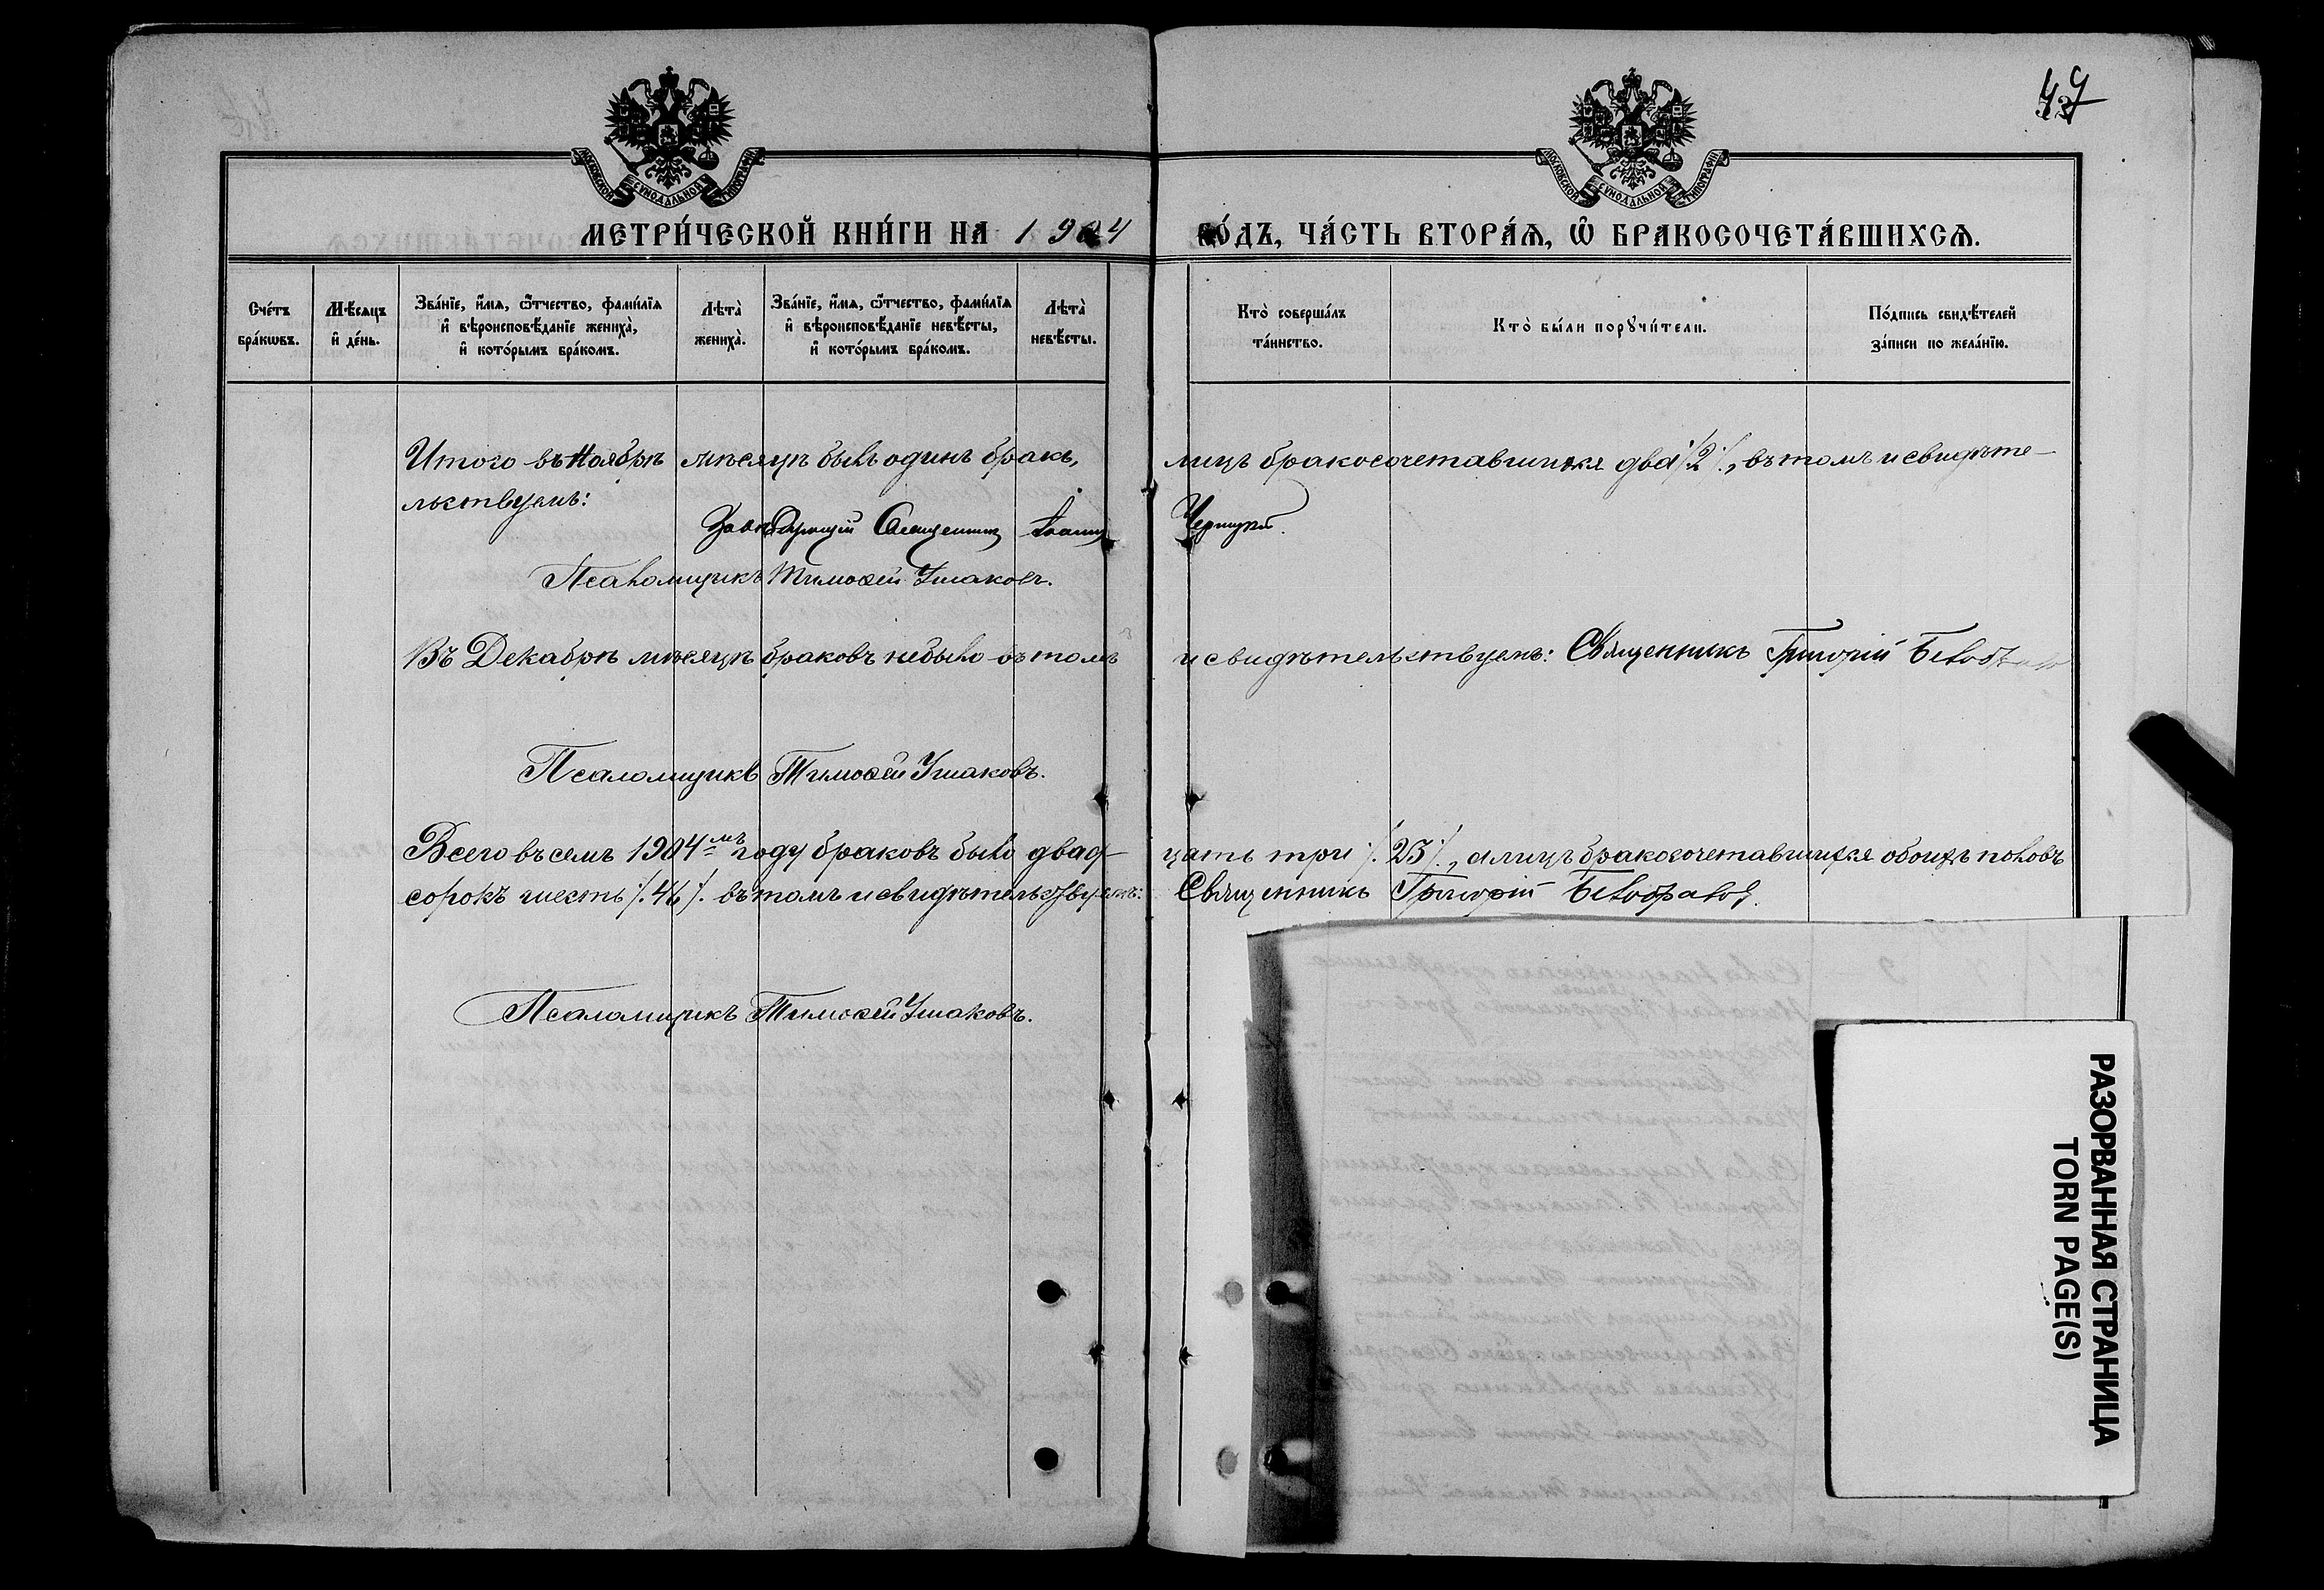 47
МОСКОВСКОЙ СѴНОДАЛЬНОЙ ТИПОГРАФІИ
МОСКОВСКОЙ СѴНОДАЛЬНОЙ ТИПОГРАФІИ
МЕТРИ́ЧЕСКОЙ КНИ́ГИ НА 1904 ГО́ДЪ, ЧА́СТЬ ВТОРА́Ѧ, Ѡ҆ БРАКОСОЧЕТА́ВШИХСѦ.
Сче́тъ бра́кѡвъ.
Мѣ́сѧцъ и҆ де́нь.
Зва́нїе, и҆́мѧ, ѻ҆́тчество, фами́лїѧ и҆ вѣроисповѣ́данїе жениха̀, и҆ кото́рымъ бра́комъ.
Лѣта̀ жениха̀.
Зва́нїе, и҆́мѧ, ѻ҆́тчество, фами́лїѧ и҆ вѣроисповѣ́данїе невѣ́сты, и҆ кото́рымъ бра́комъ.
Лѣта̀ невѣ́сты.
Кто̀ соверша́лъ та́инство.
Кто̀ бы́ли порꙋчи́тели.
По́дпись свидѣ́телей за́писи по жела́нїю.
Итого въ Ноябрѣ мѣсяцѣ былъ одинъ бракъ, лицъ бракосочетавшихся два ./2/., въ томъ и свидѣте-
льствуемъ:
Завѣдующій Священникъ Іоаннъ
Псаломщикъ Тимоѳей Ушаковъ.
Въ Декабрѣ мѣсяцѣ браковъ небыло въ томъ и свидѣтельствуемъ: Священникъ Григорій
Псаломщикъ Тимоѳей Ушаковъ.
Всего въ семъ 1904мъ году браковъ было двад- цать три ./23/., а лицъ бракосочетавшихся обоихъ половъ
сорокъ шесть ./46/. въ томъ и свидѣтельствуемъ: Священникъ Григорій
Псаломщикъ Тимоѳей Ушаковъ.
РАЗОРВАННАЯ СТРАНИЦА
TORN PAGE(S)